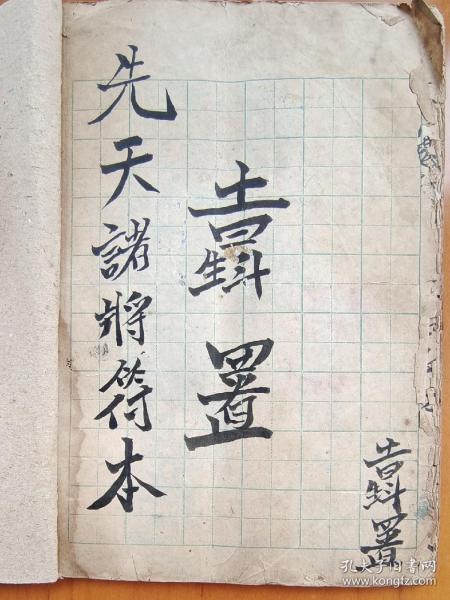 置
置
先天諸將符本
孔夫子旧书网
www.kongfz.com